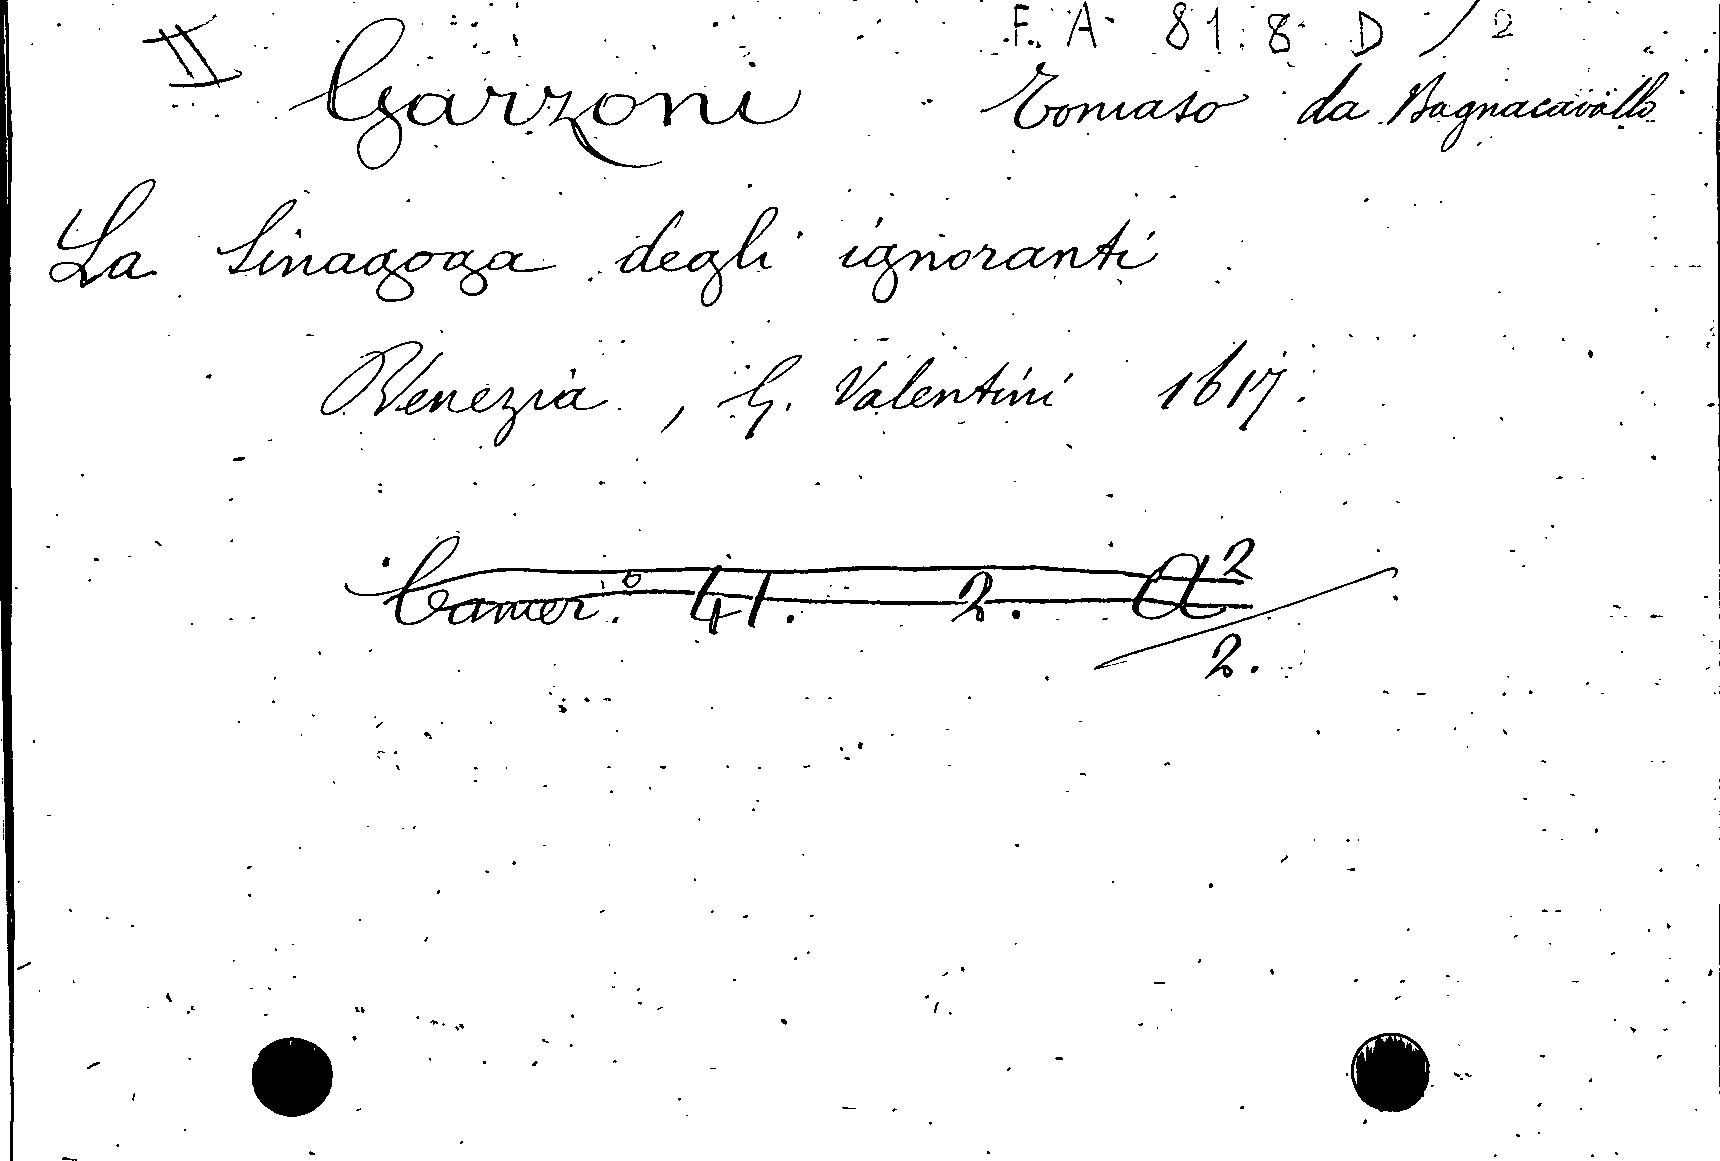 II F. A. 81. 8. D / 2
Garzoni Tomaso da Bagnacavallo
La Sinagoga degli ignoranti
Venezia, G. Valentini 1617.
Camer.º 41. 2. A²/2.